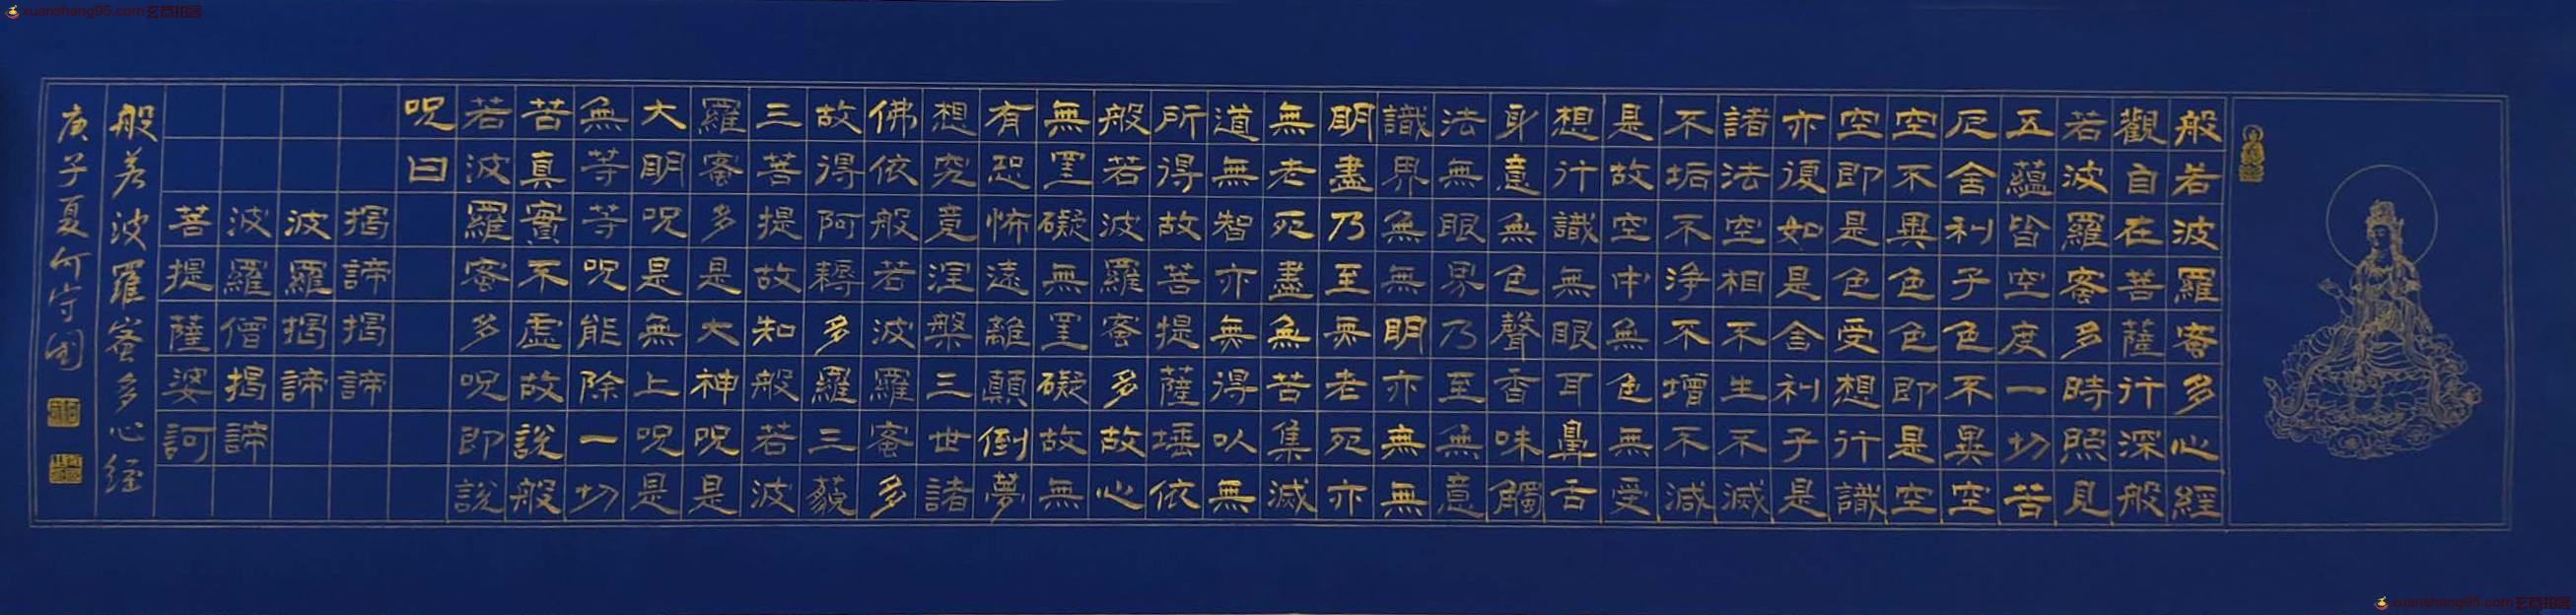 般若波羅蜜多心經
觀自在菩薩行深般
若波羅蜜多時照見
五蘊皆空度一切苦
厄舍利子色不異空
空不異色色即是空
空即是色受想行識
亦復如是舍利子是
諸法空相不生不滅
不垢不淨不增不減
是故空中無色無受
想行識無眼耳鼻舌
身意無色聲香味觸
法無眼界乃至無意
識界無無明亦無無
明盡乃至無老死亦
無老死盡無苦集滅
道無智亦無得以無
所得故菩提薩埵依
般若波羅蜜多故心
無罣礙無罣礙故無
有恐怖遠離顛倒夢
想究竟涅槃三世諸
佛依般若波羅蜜多
故得阿耨多羅三藐
三菩提故知般若波
羅蜜多是大神呪是
大明呪是無上呪是
無等等呪能除一切
苦真實不虛故說般
若波羅蜜多呪即說
呪曰
揭諦揭諦
波羅揭諦
波羅僧揭諦
菩提薩婆訶
般若波羅蜜多心經
庚子夏何守國
xuanshang95.com
xuanshang95.com